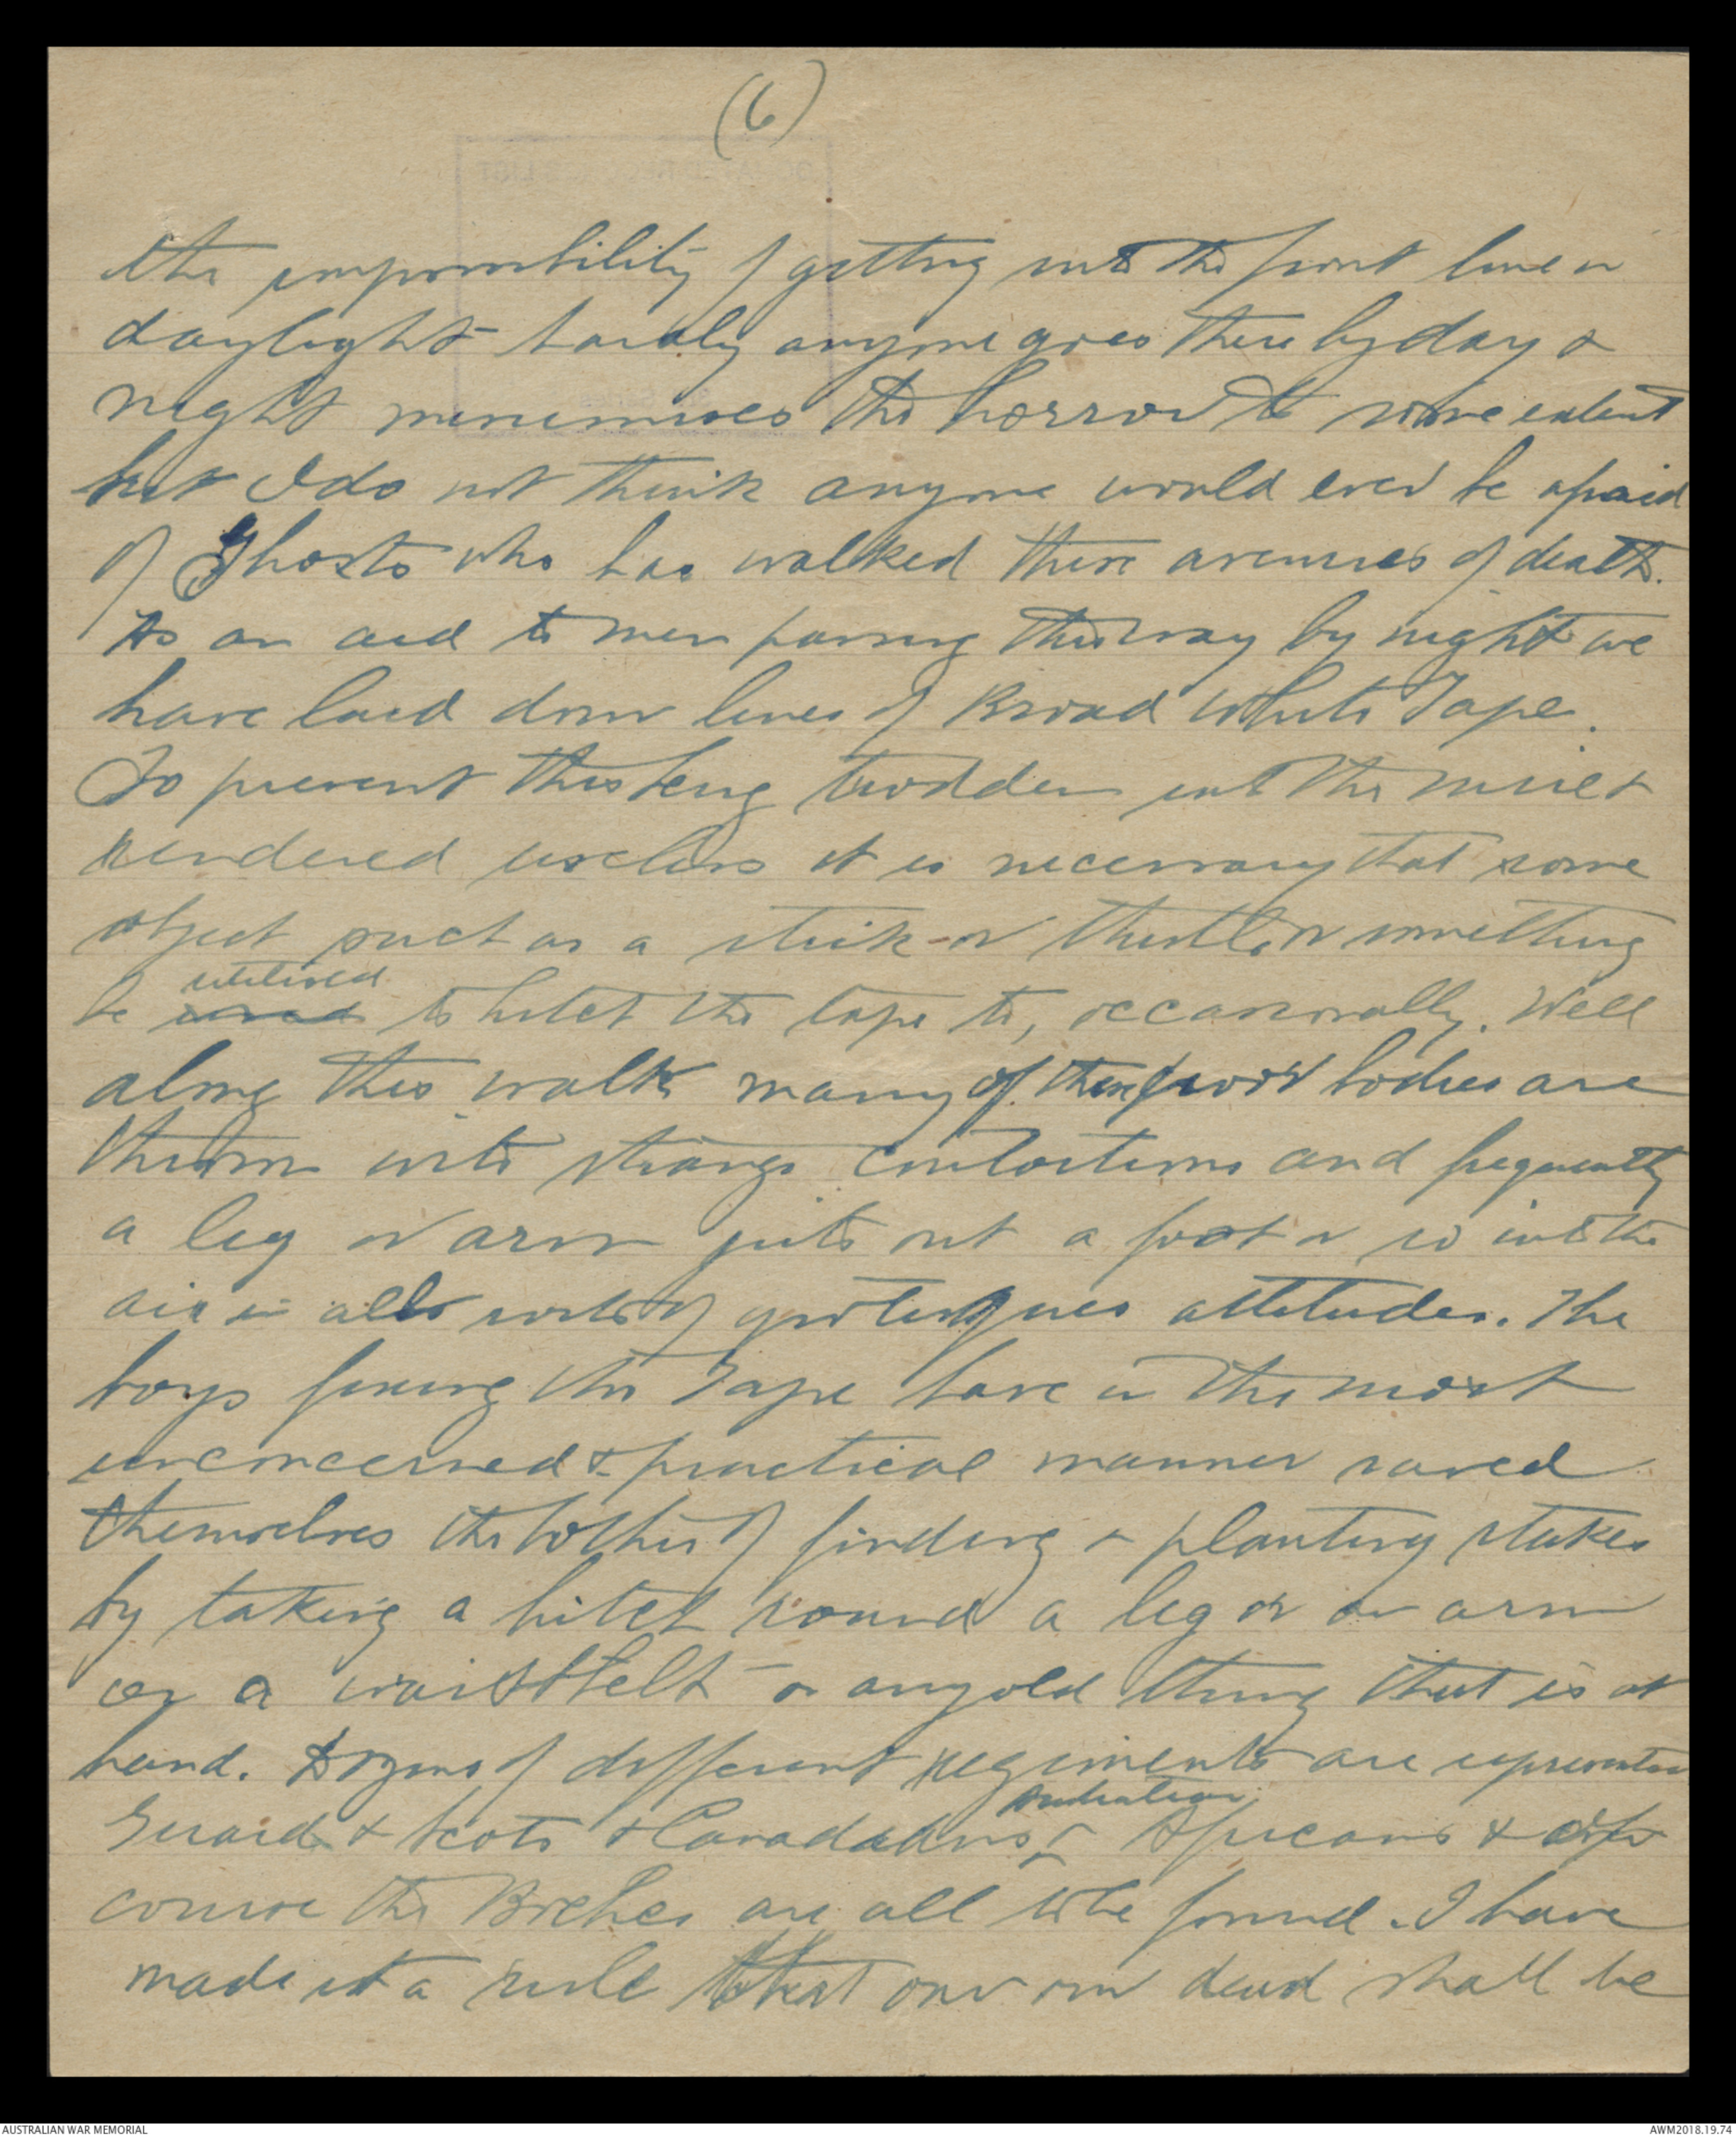 (6)
the impossibility of getting into the front line in
daylight - hardly anyone goes there by day &
night minimises the horror to some extent
but I do not think anyone would ever be afraid
of Ghosts who has walked these avenues of death.
As an aid to men passing this way by night we
have laid down lines of Broad White Tape.
To prevent this being trodden into the mire &
rendered useless it is necessary that some
object such as a stick or thistle or something
utilised
be used to hitch the tape to, occasionally. Well
along this walk many of these poor bodies are
thrown into strange contortions and frequently
a leg or arm juts out a foot or so into the
air in all sorts of grotesques attitudes. The
boys fixing the Tape have in the most
unconcerned & practical manner saved
themselves the bother of finding & planting stakes
by taking a hitch round a leg or an arm
or a waistbelt - or any old thing that is at
hand. Dozens of different regiments are represented
Australian
Guards & Scots & Canadians Africans & of
course the Boches are all to be found. I have
made it a rule that our own dead shall be
AUSTRALIAN WAR MEMORIAL
AWM2018.19.74